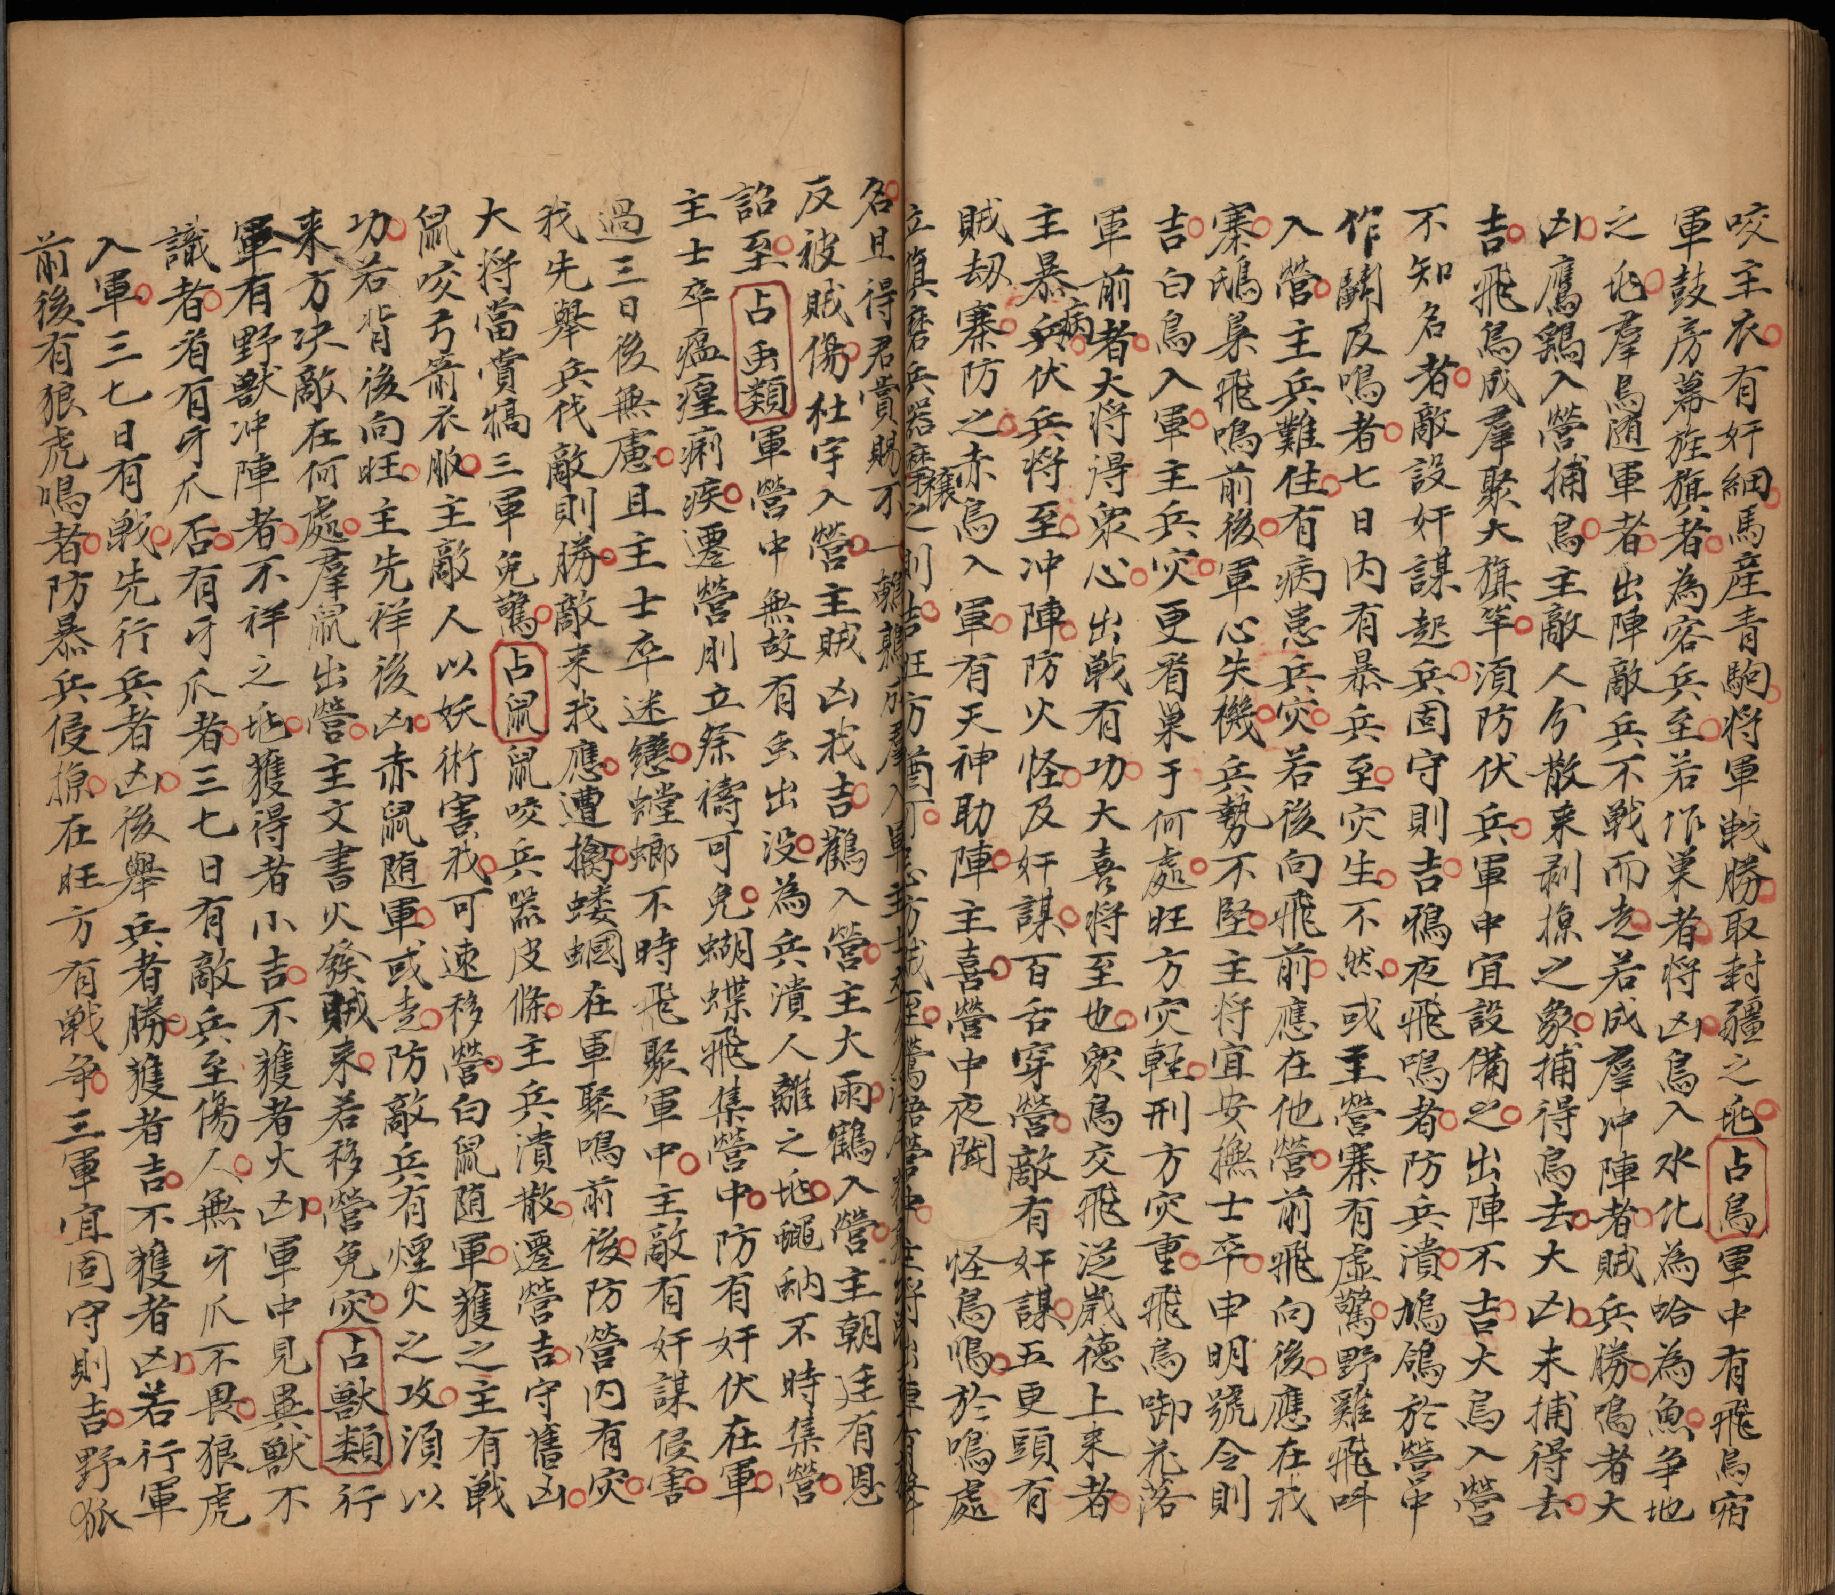 咬主衣有奸細馬産青駒将軍戦勝取封疆之兆占鳥軍中有飛鳥宿
軍鼓房幕旌旗者為客兵至若作巢者将凶鳥入水化為蛤為魚争地
之兆羣鳥随軍者出陣敵兵不戦而走若成羣冲陣者賊兵勝鳴者大
凶鷹鷂入營捕鳥主敵人分散来剥掠之象捕得鳥去大凶未捕得去
吉飛鳥成羣聚大旗竿須防伏兵軍中宜設備之出陣不吉大鳥入營
不知名者敵設奸謀起兵固守則吉鴉夜飛鳴者防兵潰鳩鴿於營中
作鬪及鳴者七日内有暴兵至灾生不然或主營寨有虚驚野雞飛呌
入營主兵難住有病患兵灾若後向飛前應在他營前飛向後應在我
寨鴟梟飛鳴前後軍心失機兵勢不堅主将宜安撫士卒申明號令則
吉白鳥入軍主兵灾更看巢于何處旺方灾軽刑方灾重飛鳥啣花落
軍前者大将得衆心出戦有功大喜将至也衆鳥交飛泛歲德上来者
主暴兵病伏兵将至冲陣防火怪及奸謀百舌穿營敵有奸謀五更頭有
賊刼寨防之赤鳥入軍有天神助陣主喜營中夜聞怪鳥鳴於鳴處
兵器禳之則吉旺方
名且得君賞賜不一入軍
反被賊傷杜宇入營主賊凶我吉鸛入營主大雨鶴入營主朝廷有恩
詔至占虫類軍營中無故有虫出没為兵潰人離之兆蠅蚋不時集營
主士卒瘟瘟痢疾遷營刖立祭禱可免蝴蝶飛集營中防有奸伏在軍
過三日後無慮且主士卒迷戀螳螂不時飛聚軍中主敵有奸謀侵害
我先舉兵伐敵則勝敵来我應遭擒蝼蝈在軍聚鳴前後防營内有灾
大将當賞犒三軍免驚占鼠鼠咬兵器皮條主兵潰散遷營吉守舊凶
鼠咬弓箭衣服主敵人以妖術害我可速移營白鼠随軍獲之主有戦
功若背後向旺主先祥後凶赤鼠随軍或走防敵兵有煙火之攻須以
来方决敵在何處羣鼠出營主文書火發賊来若移營免灾占獸類行
軍有野獸冲陣者不祥之兆獲得者小吉不獲者大凶軍中見異獸不
識者看有牙爪否有牙爪者三七日有敵兵至傷人無牙爪不畏狼虎
入軍三七日有戦先行兵者凶後舉兵者勝獲者吉不獲者凶若行軍
前後有狼虎鳴者防暴兵侵掠在旺方有戦争三軍宜固守則吉野狐